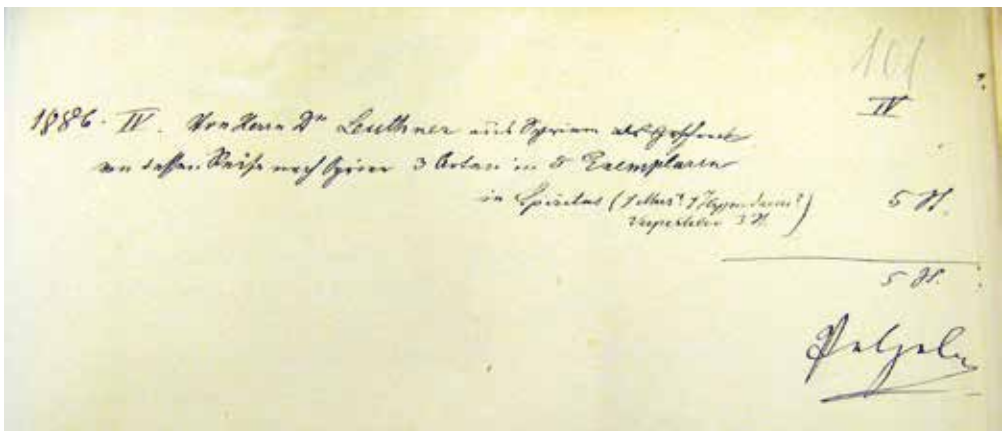 101
IV
1886. IV. Von Herrn Dr Leuthner aus Syrien als Geschenk
von dessen Reise nach Syrien 3 Arten in 5 Exemplaren
in Spiritus (1 Mus? 1
Vesperugo 3 St. ) 5 St.
5 St.
Pelzeln